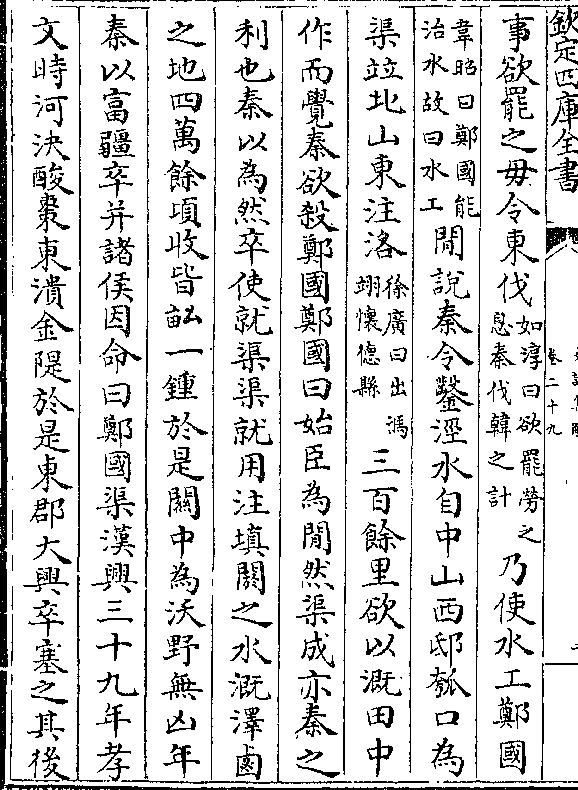 欽定四庫全書
卷二十九
事欲罷之毋令東伐如淳曰欲罷勞之息秦伐韓之計乃使水工鄭國
韋昭曰鄭國能治水故曰水工閒說秦令鑿涇水自中山西邸瓠口為
渠竝北山東注洛徐廣曰出馮翊懷德縣三百餘里欲以溉田中
作而覺秦欲殺鄭國鄭國曰始臣為閒然渠成亦秦之
利也秦以為然卒使就渠渠就用注填閼之水溉澤鹵
之地四萬餘頃收皆畝一鍾於是關中為沃野無凶年
秦以富疆卒并諸侯因命曰鄭國渠漢興三十九年孝
文時河決酸棗東潰金隄於是東郡大興卒塞之其後